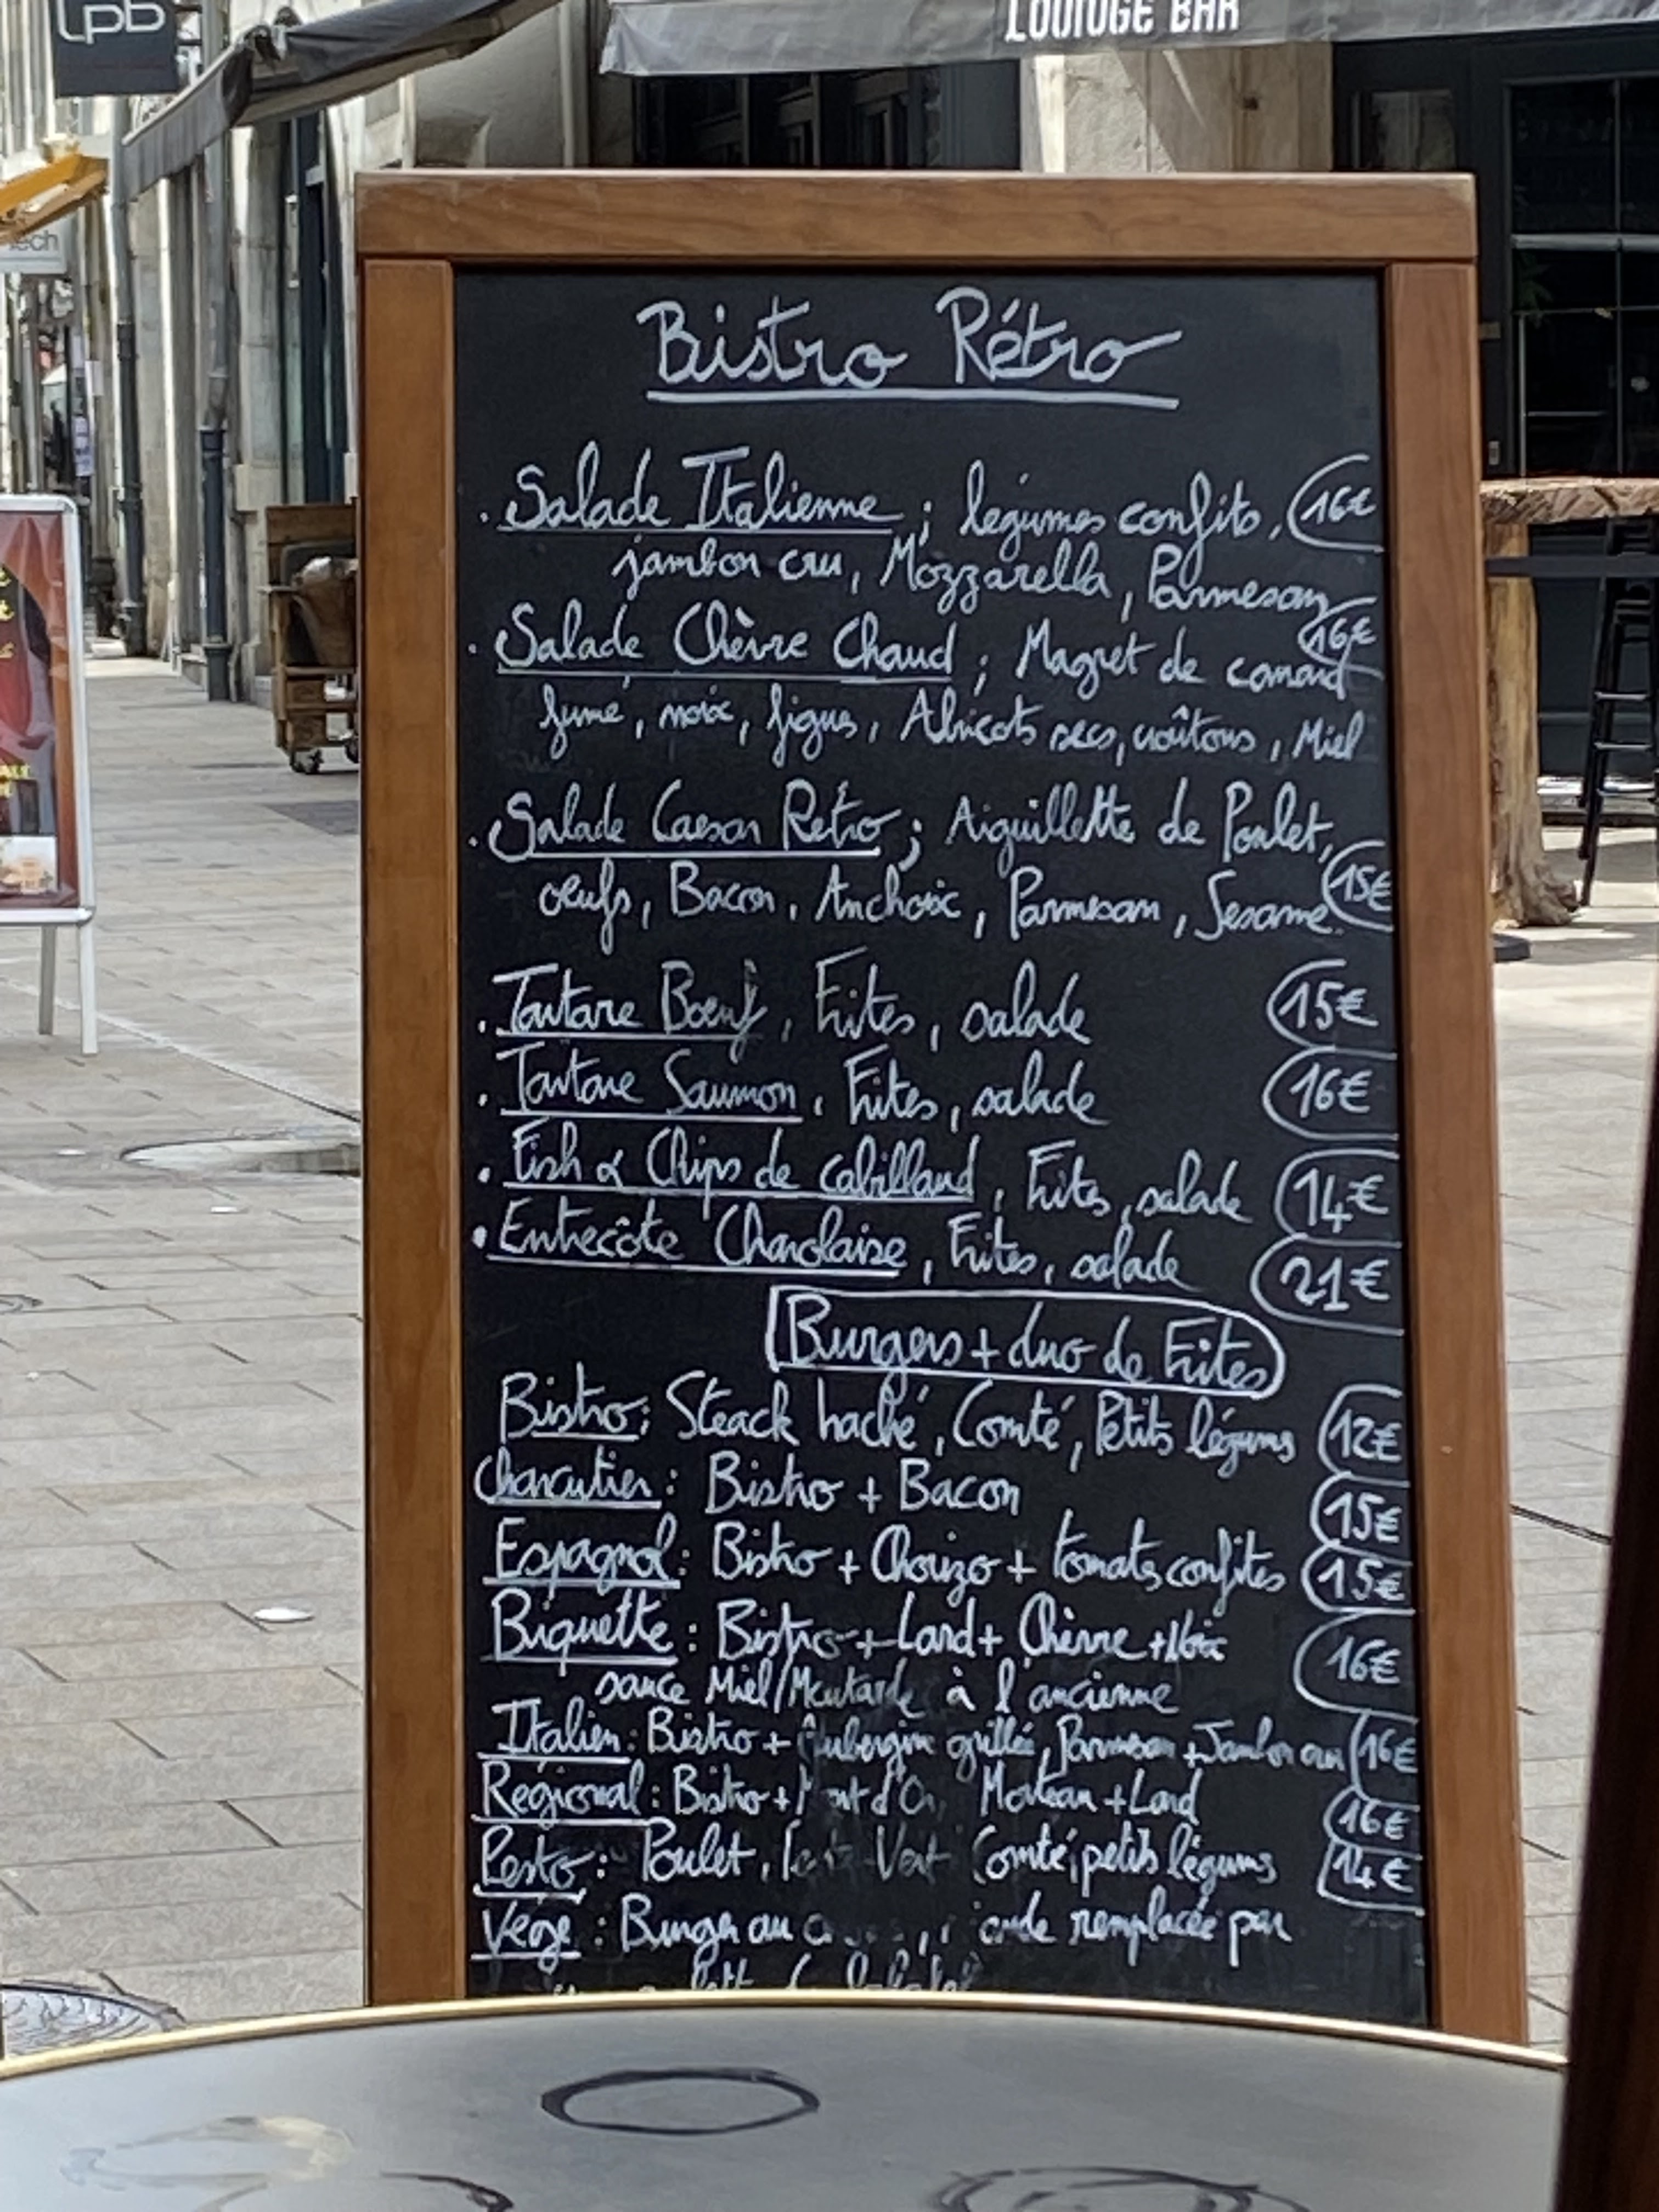 lpb
LOUNGE BAR
ech
Bistro Rétro
. Salade Italienne ; légumes confits, 16€
jambon cru, Mozzarella, Parmesan
. Salade Chèvre Chaud ; Magret de canard 16€
fumé, noix, figues, Abricots secs, croûtons, Miel
. Salade Caesar Rétro ; Aiguillette de Poulet,
oeufs, Bacon, Anchoix, Parmesan, Sesame. 15€
. Tartare Boeuf, Frites, salade 15€
. Tartare Saumon, Frites, salade 16€
. Fish & Chips de cabillaud, Frites, salade 14€
. Entrecôte Charolaise, Frites, salade 21€
Burgers + duo de Frites
Bistro : Steack haché, Comté, Petits légums 12€
Charcutier : Bistro + Bacon 15€
Espagnol : Bistro + Chorizo + tomates confites 15€
Biquette : Bistro + Lard + Chèvre + Noix 16€
sauce Miel/Moutarde à l'ancienne
Italien : Bistro + Aubergine grillée, Parmesan + Jambon cru 16€
Regional : Bistro + Mont d'Or, Morteau + Lard 16€
Pesto : Poulet, Vert Comté, petits légums 14€
Végé : Burger au remplacée par